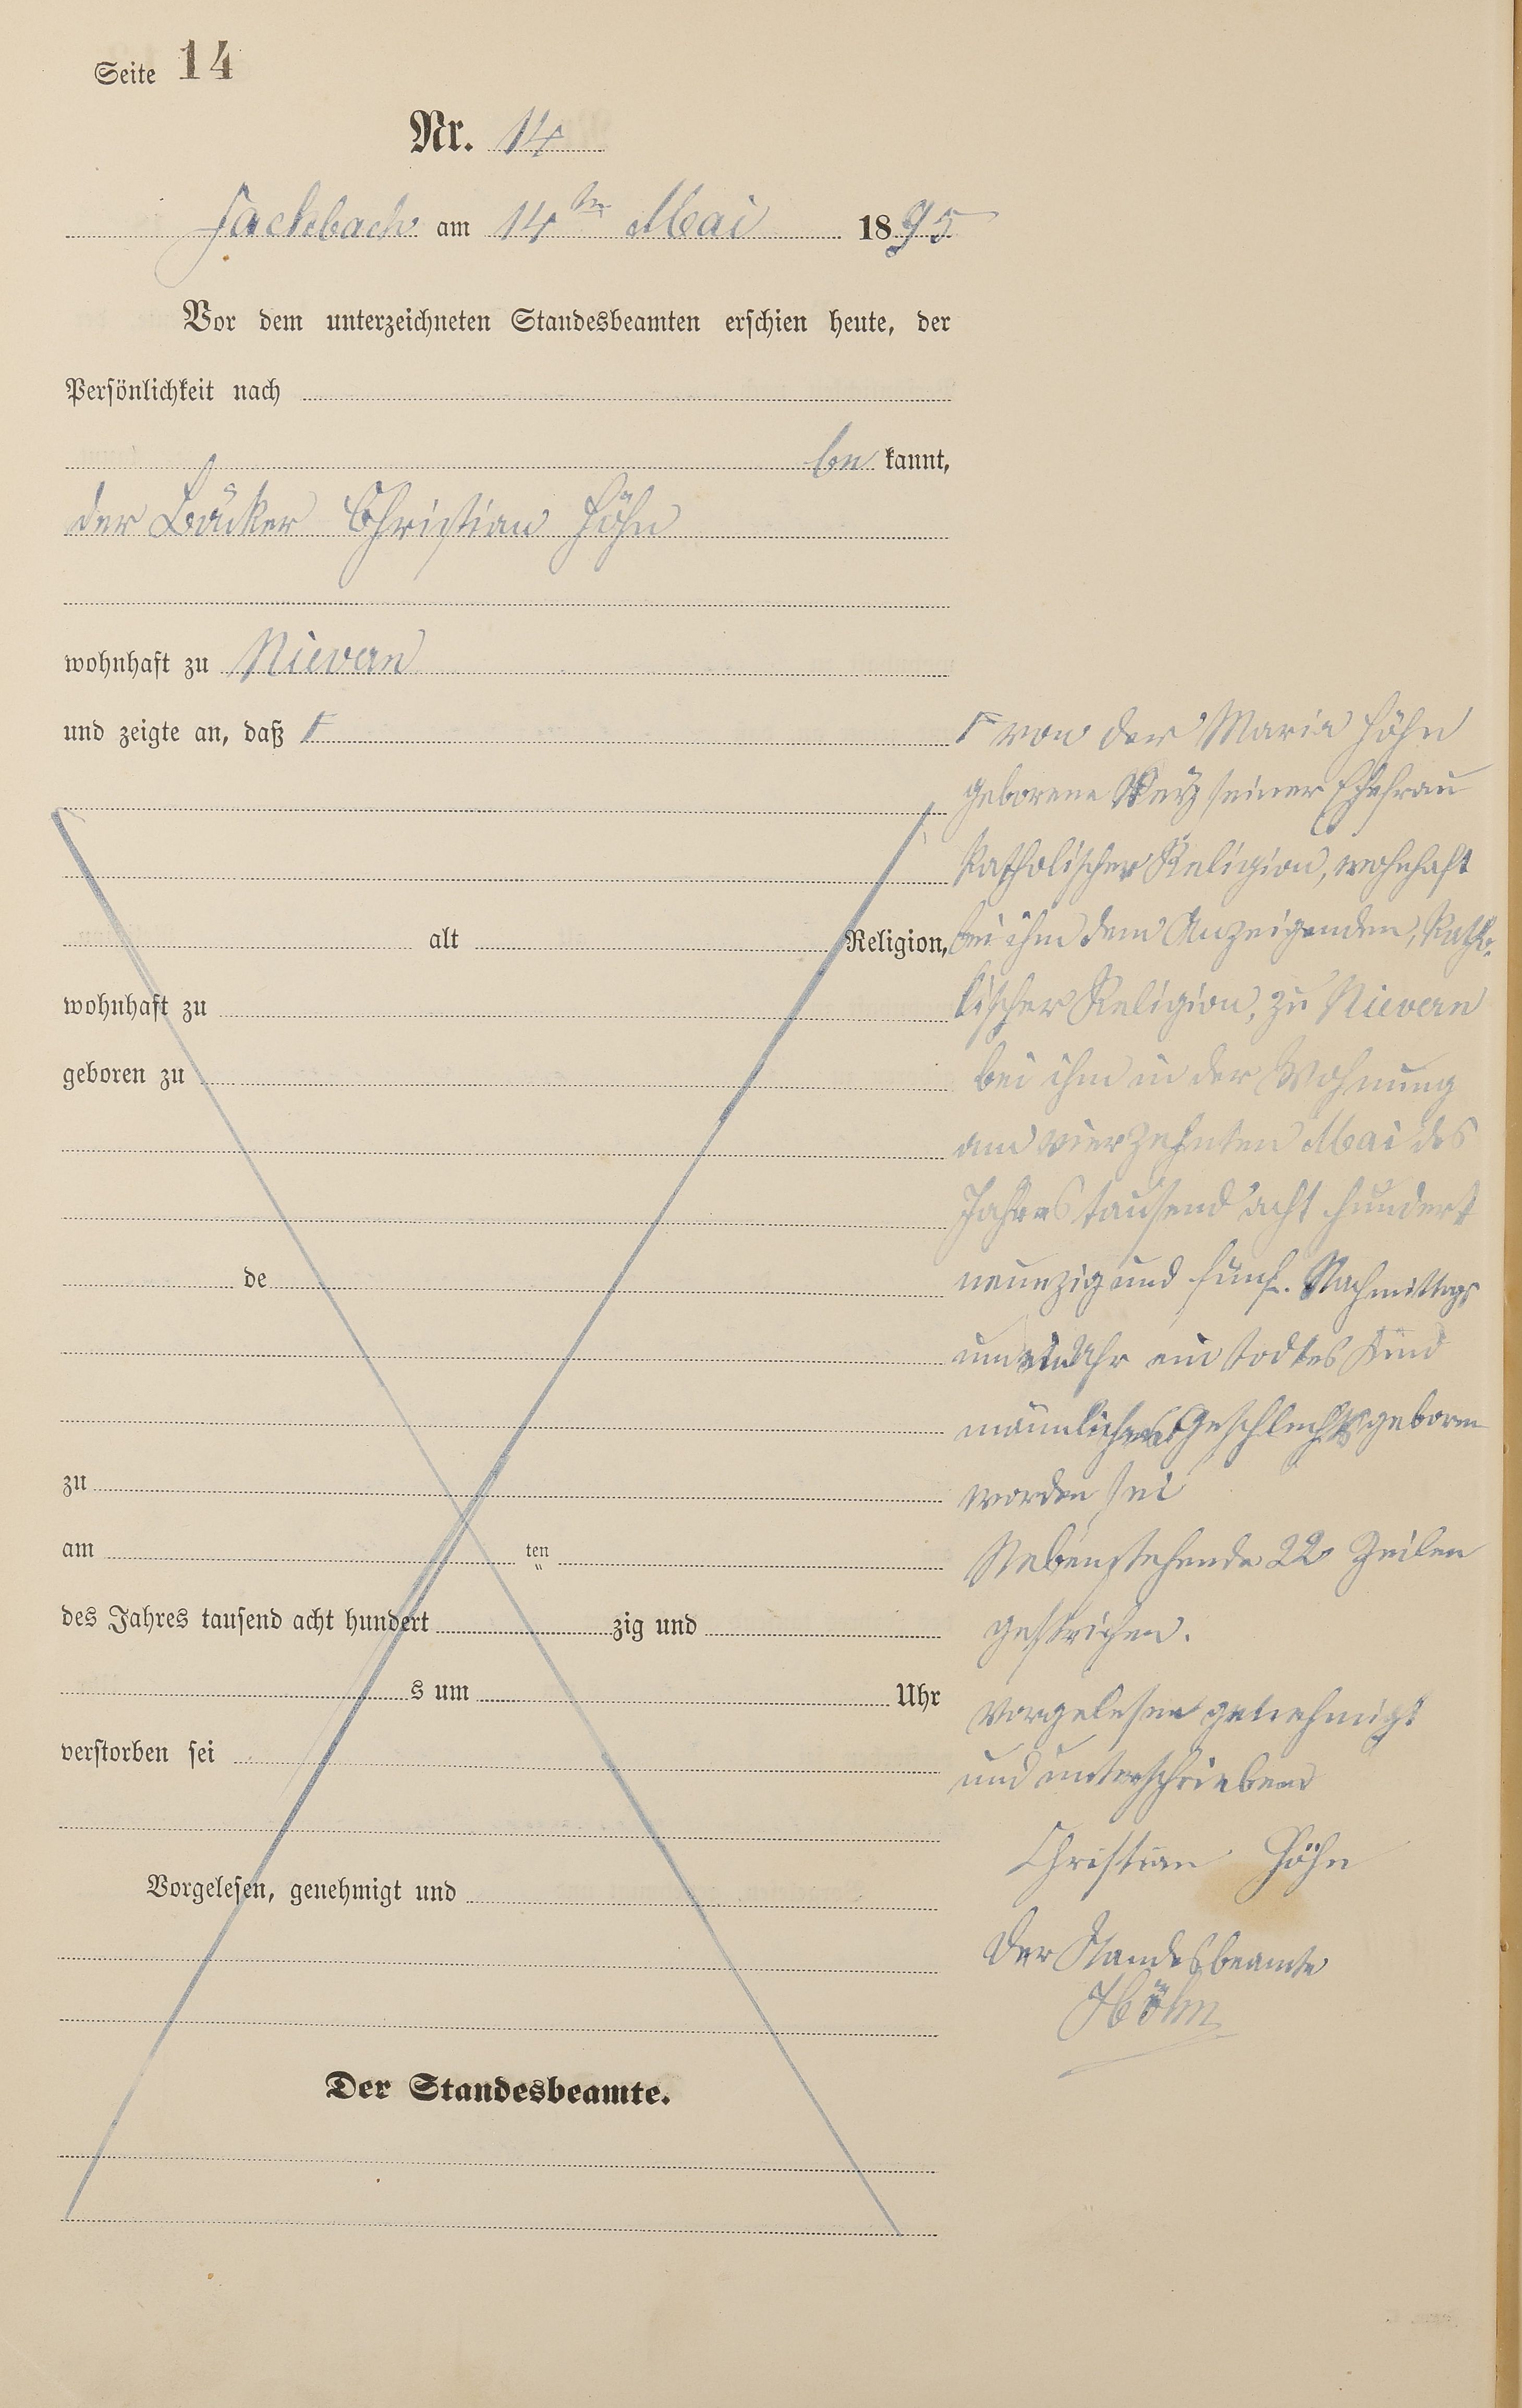 Seite 14
Nr. 14
Fachbach am 14ten Mai 1895
Vor dem unterzeichneten Standesbeamten erschien heute, der
Persönlichkeit nach
be kannt,
der Bäcker Christian Höhn
wohnhaft zu Nievern
und zeigte an, daß Γ
alt Religion,
wohnhaft zu
geboren zu
de
zu
am ten
des Jahres tausend acht hundert zig und
s um Uhr
verstorben sei
Vorgelesen, genehmigt und
Der Standesbeamte.
Γ von der Maria Höhn
geborene seiner Ehefrau
katholischer Religion, wohnhaft
bei ihm dem Anzeigenden, katho-
lischer Religion, zu Nievern
bei ihm in der Wohnung
am vierzehnten Mai des
Jahres tausend acht hundert
neunzig und fünf. Nachmittags
um ein Uhr ein todtes Kind
männlichen Geschlechts geboren
worden sei
Nebenstehende 22 Zeilen
gestrichen.
Vorgelesen genehmigt
und unterschrieben
Christian Höhn
Der Standesbeamte
Höhn